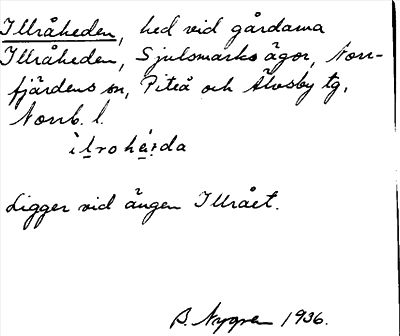 Illråheden, hed vid gårdarna
Illråheden, Sjulsmarks ägor, Norr-
fjärdens sn, Piteå och Älvsby tg,
Norrb. l.
ì l̲roh é̤:da
Ligger vid ängen Illrået.
B. Nygren 1936.